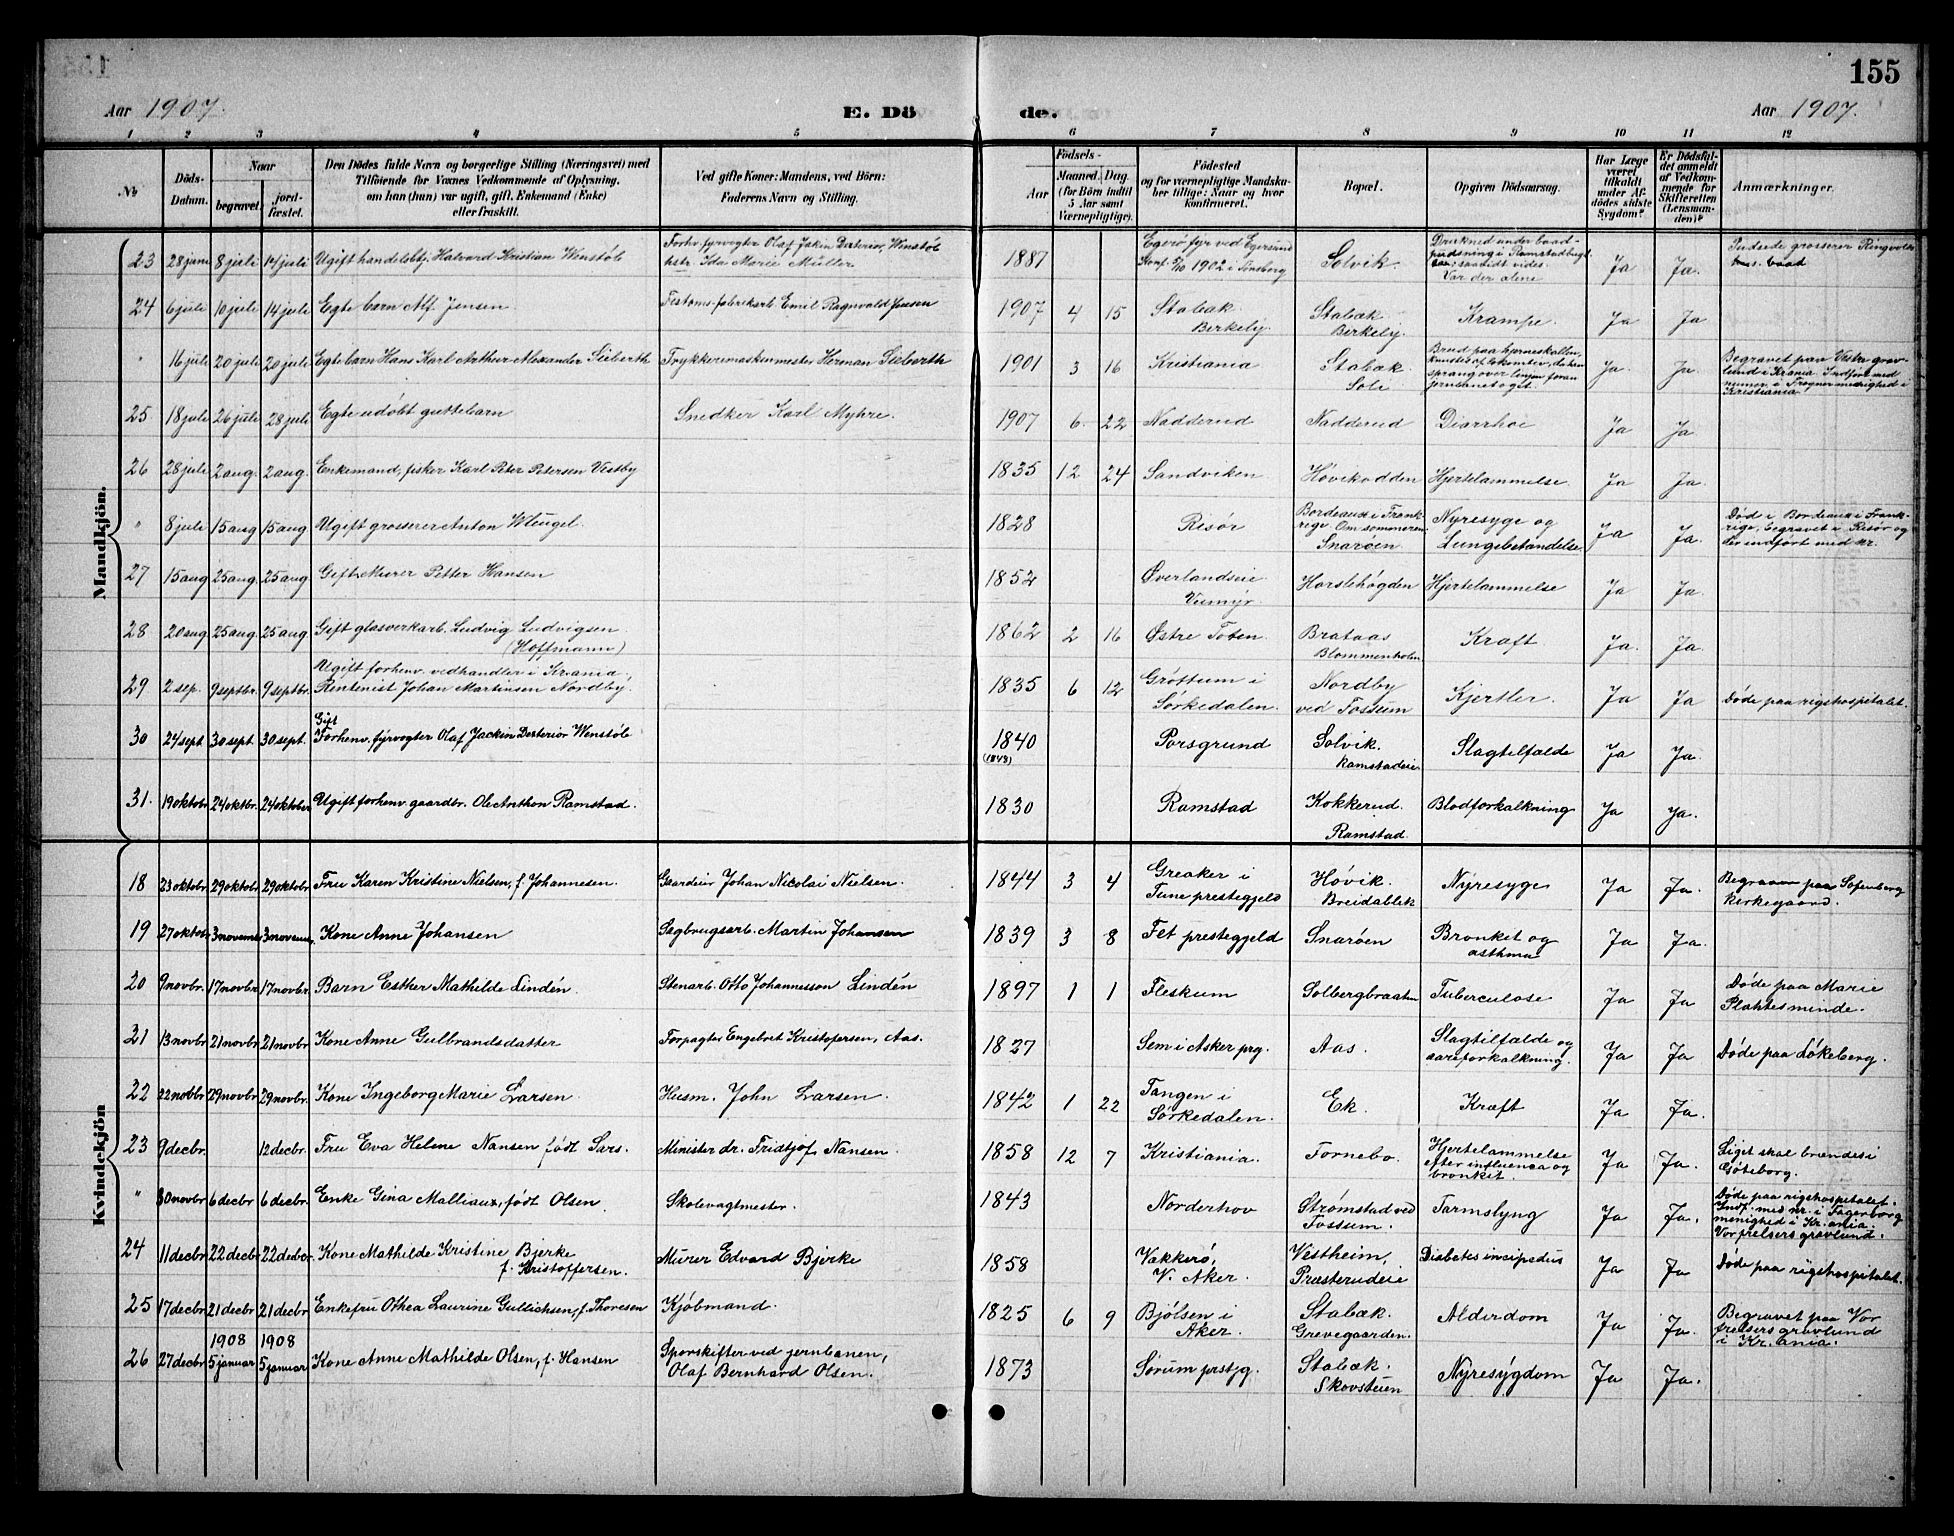 155
Aar 1907. E. Dö de. Aar 1907.
1 2 3 4 5 6 7 8 9 10 11 12
No
Döds-Datum.
Naar begravet. jordfæstet.
Den Dödes fulde Navn og borgerlige Stilling (Næringsvei) med Tilföiende for Voxnes Vedkommende af Oplysning, om han (hun) var ugift, gift, Enkemand (Enke) eller fraskilt.
Ved gifte Koner: Mandens, ved Börn: Faderens Navn og Stilling.
Aar
Födsels- Maaned. Dag. (for Börn indtil 5 Aar samt Værnepligtige).
Födested og for værnepligtige Mandskaber tillige: Naar og hvor konfirmeret.
Bopæl.
Opgiven Dödsaarsag.
Har Læge været tilkaldt under Afdödes sidste Sygdom?
Er Dödsfaldet anmeldt af Vedkommende for Skifteretten (Lensmanden)?
Anmærkninger.
Mandkjön.
23 28 juni 8 juli 14 juli Ugift handelsbtj. Halvard Kristian Wenstöb Forhv. fyrvogter Olaf Jakin Dexteriør Wenstöb hstr. Ida Marie Müller 1887 Egerö fyr ved Egersund Konf. 5/10 1902 i Tønsberg Solvik Drukned under baadpudsning i Ramstadbugten: saavidt vides. Var der alene Ja Ja. Pudsede grosserer Ringvolds baad
24 6 juli 10 juli 14 juli Egte barn Alf Jensen Festoms-fabrikarb. Emil Ragnvald Jensen 1907 4 15 Stabæk Berkely. Stabæk Berkely. Krampe. Ja Ja
" 16 juli 20 juli 20 juli Egte barn Hans Karl Arthur Alexander Sieberth Trykkerimaskinmester Herman Sieberth 1901 3 16 Kristiania Stabæk Soli Brud paa hjerneskallen, kvæstedes af lokomotiv, da han sprang over linjen foran jernbanetoget. Ja. Ja Begravet paa Vestre gravlund i Krania Indført med numer i Frogner menighed i Kristiania
25 18 juli 26 juli 28 juli Egte udöbt guttebarn Snedker Karl Myhre. 1907 6. 22 Nadderud Nadderud Diarrhoe Ja Ja
26 28 juli 2 aug. 2 aug. Enkemand, fisker Karl Peter Petersen Vestby 1835 12 24 Sandviken Høvikodden Hjertelammelse. Ja Ja.
" 8 juli 15 aug 15 aug Ugift grosserer Anton Wleugel. 1828 Risör Bordeaux i Frankrige. Om sommeren Snarøen Nyresyge og Lungebetændelse. Ja Ja. Død i Bordeaux i Frankrige, begravet i Risør og der indført med nr.
27 15 aug 25 aug. 25 aug Gift Murer Petter Hansen 1852 Øverlandseie Vesmyr. Horslehøgden Hjertelammelse Ja Ja.
28 20 aug 25 aug. 25 aug Gift glasverkarb. Ludvig Ludvigsen. (Hoffmann) 1862 2 16 Østre Toten. Brataas Blommenholm. Kræft Ja. Ja.
29 2 sep. 9 septbr. 9 septbr. Ugift forhenv. vedhandler i Krania, Rentenist Johan Martinsen Nordby. 1835 6 12 Gröttum i Sörkedalen. Nordby ved Fossum Kjertler. Ja Ja Døde paa rigshospitalet.
30 24 sept 30 sept. 30 sept. Gift Forhenv. fyrvogter Olaf Jackin Dexteriør Wenstöb 1840 (1843) Porsgrund Solvik. Ramstadeie Slagtilfælde Ja Ja.
31. 19 oktobr 24 oktbr. 24 oktober Ugift forhenv. gaardbr. Ole Anthon Ramstad. 1830 Ramstad Kokkerud. Ramstad. Blodforkalkning Ja Ja.
Kvindekjön
18 23 oktobr 29 oktobr 29 oktobr Fru Karen Kristine Nielsen, f. Johannesen. Gaardeier Johan Nicolai Nielsen. 1844 3 4 Greaker i Tune prestegjeld Høvik. Breidablik Nyresyge Ja Ja. Begraven paa Sofienberg kirkegaard.
19 27 oktobr 3 novem 3 novem. Kone Anne Johansen Sagbrugsarb. Martin Johansen 1839 3 8 Fet prestegjeld Snarøen Bronkit og asthma Ja Ja.
20 9 novbr. 17 novbr. 17 novbr. Barn Esther Mathilde Lindén. Stenarb. Otto Johannesson Lindén 1897 1 1 Fleskum Solbergbraaten Tuberculose Ja Ja Døde paa Marie Plahtes minde.
21 13 novbr 21 novbr 21 novbr. Kone Anne Gulbrandsdatter Forpagter Engebret Kristofersen, Aas. 1827 Sem i Asker prg. Aas. Slagtilfælde og aareforkalkning. Ja Ja Døde paa Løkeberg.
22 22 novbr 29 novbr 29 novbr. Kone Ingeborg Marie Larsen Husm. John Larsen. 1842 1 22 Tangen i Sørkedalen. Ek. Kræft Ja Ja.
23 9 decbr. 12 decbr. Fru Eva Helene Nansen født Sars. Minister dr. Fridtjof Nansen. 1858 12 7 Kristiania. Fornebo. Hjertelammelse efter influenca og bronkit. Ja Ja. Liget skal brændes i Göteborg.
" 30 novbr 6 decbr 6 decbr. Enke Gina Malliaux, født Olsen Skolevagtmester. 1843 Norderhov Strømstad ved Fossum. Tarmslyng Ja Ja. Døde paa rigshospitalet. Indf. med nr. i Fagerborg menighed i Kr.ania. Vor frelsers gravlund.
24 11 decbr 22 decbr 22 decbr. Kone Mathilde Kristine Bjerke f. Kristoffersen. Murer Edvard Bjerke 1858 Vækkerö, V. Aker. Vestheim, Præsterudeie Diabetes incipedus Ja Ja Døde paa rigshospitalet.
25 17 decbr 21 decbr 21 decbr Enkefru Othea Laurine Gullichsen, f. Thoresen Kjøbmand. 1825 6 9 Bjölsen i Aker. Stabæk. Grevegaarden. Alderdom Ja Ja. Begravet paa Vor frelsers gravlund i Kr.ania.
1908 1908
26 27 decbr 5 januar 5 januar Kone Anne Mathilde Olsen, f. Hansen Sporskifter ved jernbanen, Olaf Bernhard Olsen. 1873 Sörum prstgj. Stabæk. Skovstuen Nyresygdom Ja Ja.